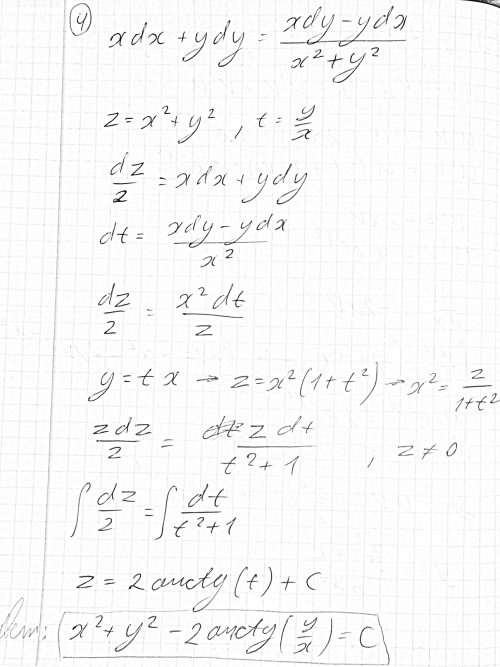 ④
xdx + ydy = (xdy - ydx)/(x² + y²)
z = x² + y² , t = y/x
dz/2 = xdx + ydy
dt = (xdy - ydx)/x²
dz/2 = x² dt/z
y = t x → z = x²(1 + t²) → x² = z/(1+t²)
z dz/2 = z dt/(t² + 1) , z ≠ 0
∫ dz/2 = ∫ dt/(t² + 1)
z = 2 arctg(t) + C
x² + y² - 2 arctg(y/x) = C